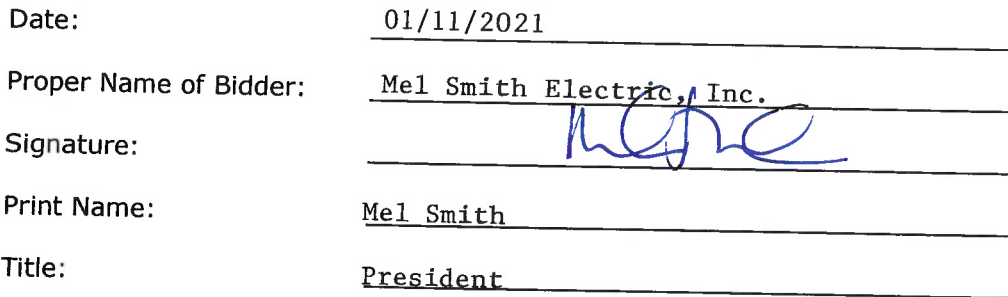 Date: 01/11/2021
Proper Name of Bidder: Mel Smith Electric, Inc.
Signature:
Print Name: Mel Smith
Title: President